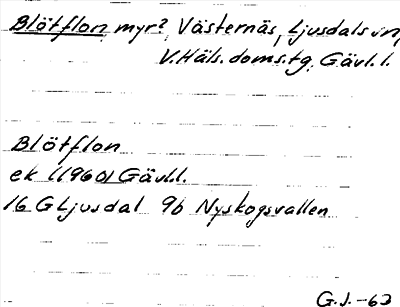 Blötflon, myr?, Västernäs, Ljusdals sn,
V. Häls. doms.tg, Gävl.l.
Blötflon
ek (1960) Gävl.l.
16 G Ljusdal 9b Nyskogsvallen
G.J.-63